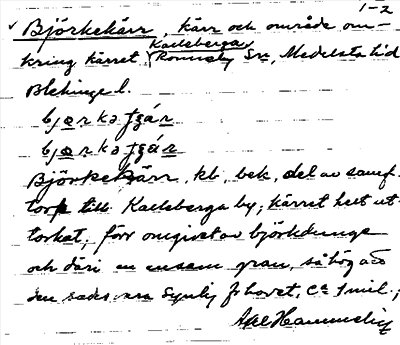 1-2
Björkekärr, kärr och område om-
Karlsberga
kring kärret, Ronneby Sn, Medelsta hd
Blekinge l.
Björkekärr, kb, bek, del av samf.
torp till Karlsberga by; kärret helt ut-
torkat, förr omgivet av björkdunge
och däri en ensam gran, så hög att
den sades vara synlig fr havet, ca 1 mil.;
Axel Hammelig